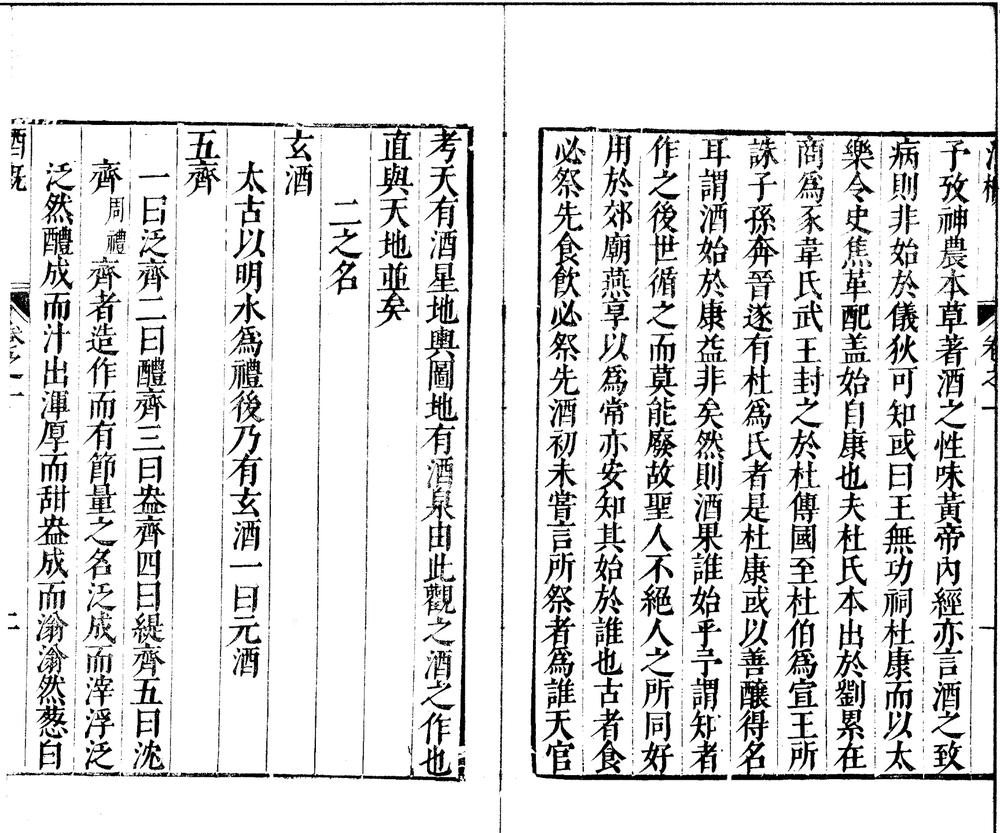 酒概 卷之一 一
予攷神農本草著酒之性味黃帝內經亦言酒之致
病則非始於儀狄可知或曰王無功祠杜康而以太
樂令史焦革配盖始自康也夫杜氏本出於劉累在
商爲豕韋氏武王封之於杜傳國至杜伯爲宣王所
誅子孫奔晉遂有杜爲氏者是杜康或以善釀得名
耳謂酒始於康益非矣然則酒果誰始乎予謂知者
作之後世循之而莫能廢故聖人不絕人之所同好
用於郊廟燕享以爲常亦安知其始於誰也古者食
必祭先食飲必祭先酒初未嘗言所祭者爲誰天官
考天有酒星地輿圖地有酒泉由此觀之酒之作也
直與天地並矣
二之名
玄酒
太古以明水爲禮後乃有玄酒一曰元酒
五齊
一曰泛齊二曰醴齊三曰盎齊四曰緹齊五曰沈
齊周禮齊者造作而有節量之名泛成而滓浮泛
泛然醴成而汁出渾厚而甜盎成而滃滃然葱白
酒概 卷之一 二